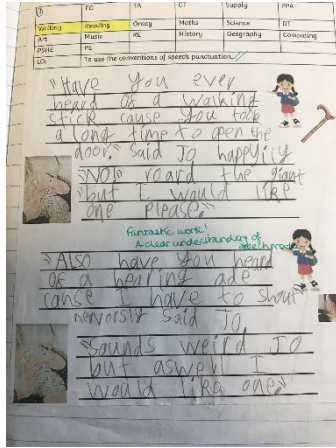 TO TA CT Supply PPA
Writing Reading Oracy Maths Science DT
Art Music RE History Geography Computing
PSHE PE
LO: To use the conventions of speech punctuation
"Have you ever
heard of a walking
stick cause you took
a long time to open the
door." Said Jo happyily
"NO!" roard the giant
"but I would like
one please."
Fantastic work!
A clear understanding of
speech marks
"Also have you heard
of a hearing ade
cause I have to shout"
nervorsly Said Jo,
"Sounds weird Jo
but aswell I
would like one."